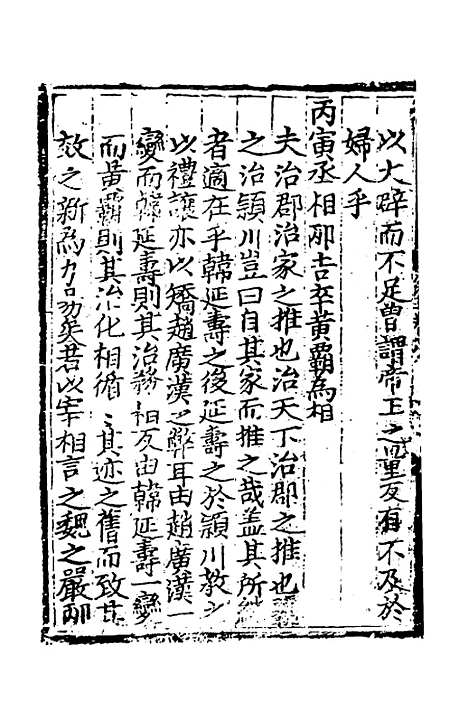 以大辟而不足曽謂帝王之量反有不及於
婦人乎
丙寅丞相邴吉卒黄霸為相
夫治郡治家之推也治天下治郡之推也
之治頴川豈曰自其家而推之哉盖其所
者適在乎韓延壽之後延壽之於頴川教之
以禮讓亦以矯趙廣漢之弊耳由趙廣漢一
變而韓延壽則其治務相反由韓延壽一變
而黄霸則其治化相循〻其迹之舊而致其
效之新為力易矣若以宰相言之魏之嚴邴